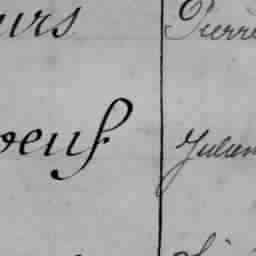 urs Pierre
oeuf Julien